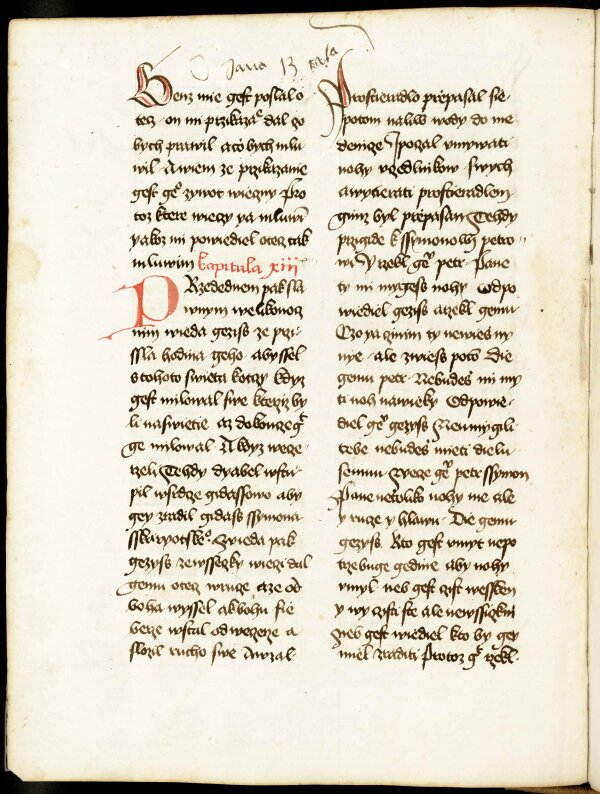 Jana 13 kala
Genz mie gest poslal o
tecz · on mi przikaza᷑ dal czo
bych prawil a czo bych mlu
wil · A wiem ze przikazanie
gest ge᷑ zywot wieczny Pro
toz ktere wieczy ya mluwi᷑
yakoz mi powiediel otecz tak
mluwim kapitula xiii
PRzedednem pak sla
wnym welikonocz
nim wieda geziss ze przi
ssla hodina geho · aby ssel
s tohoto swieta k otczy kdyz
gest milowal swe kterziz by
li na swietie az do koncze g᷑
ge milowal A kdyz wecze ·
rzeli Tehdy dyabel wstu ·
pil w srdcze gidassowo aby
gey zradil gidass ssymona
sskaryotske᷑ · Zwieda pak
gezyss ze wsseczky wieczi dal
gemu otecz w rucze a ze od
boha wyssel a k bohu sie
berze wstal od weczerze a
slozil rucho swe A wzal ·
Prostieradlo prepasal sie ·
potom naliw wody do me
denicze Ipoczal vmywati
nohy vczedlnikow swych
a wytierati prostieradlem
gimz byl prepasan Tehdy
przigide k ssymonowi petro ·
wi Y rzekl ge᷑ petr · Pane
ty mi mygess nohy Odpo
wiediel geziss a rzekl gemu
Czo ya czinim ty newies ny
nye · ale zwiess poto᷑ Die
gemu petr · Nebudes mi my
ti noh nawieky Odpowie ·
diel ge᷑ gezyss Zie nmygi li
tebe nebudess mieti dielu
se mnu Zyecze ge᷑ petr ssymon
Pane netoliko nohy me ale
y rucze y hlawu · Die gemu
gezyss · Kto gest vmyt nepo
trzebuge gedine aby nohy
vmyl · neb gest czist wessken
y wy czisti ste ale newssiczkni
Neb gest wiediel kto by gey
miel zraditi Protoz g᷑ rzekl ·